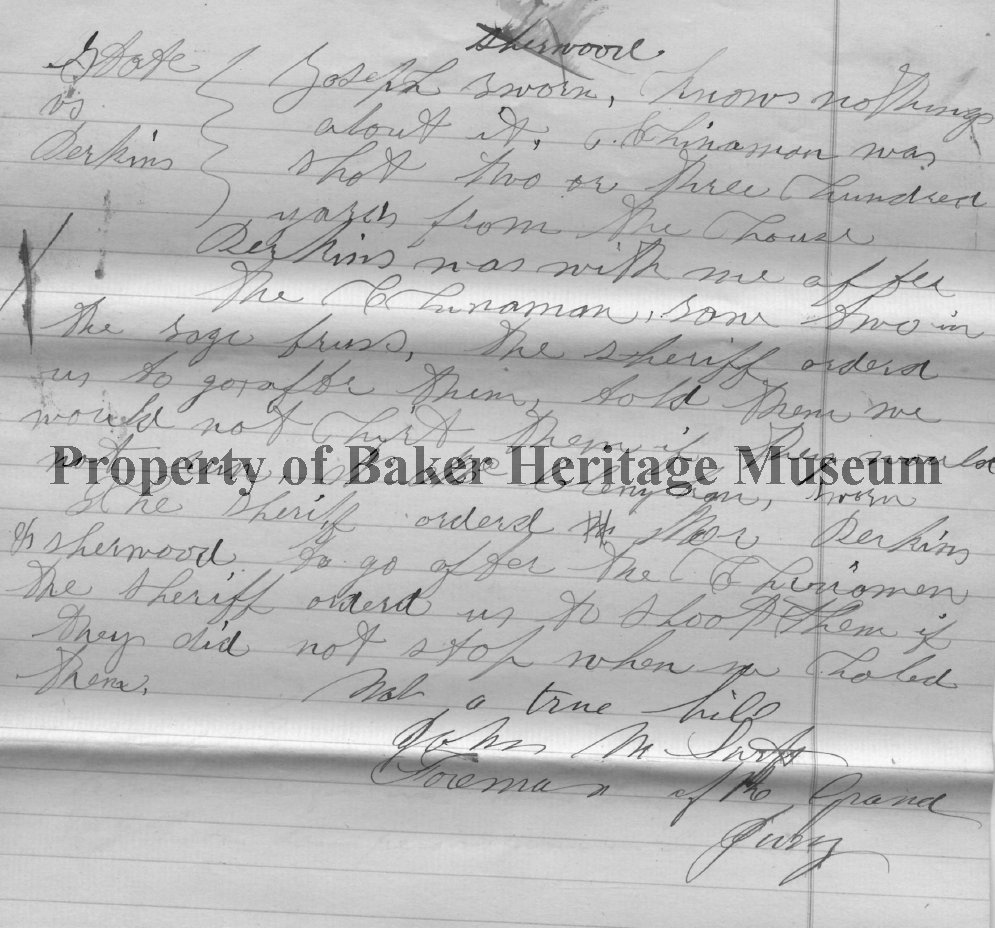 Sherwood
State
vs
Perkins
Joseph sworn, knows nothing
about it, Chinaman was
shot two or three hundred
yards from the house
Perkins was with me after
the Chinaman, saw two in
the sage brus, the sheriff orderd
us to go afte them, told them we
would not hurt them if they would
not run, sworn
Property of Baker Heritage Museum
The sheriff orderd Perkins
& Sherwood to go after the Chinamen
the sheriff orderd us to shoot them if
they did not stop when we holed
them.
Not a true bill
John M
Foreman of the Grand
Jury